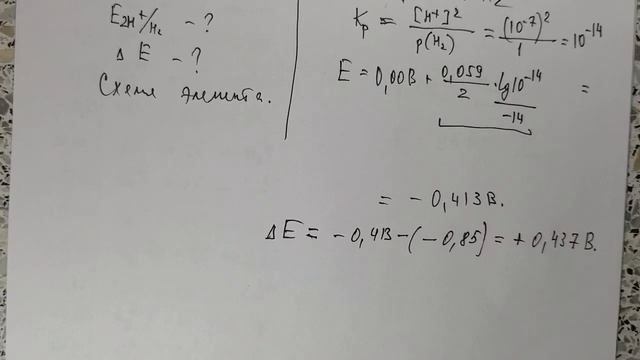 E 2H⁺/H₂ - ?
Δ E - ?
Схема элемента.
Kр = [H⁺]² / p(H₂) = (10⁻⁷)² / 1 = 10⁻¹⁴
E = 0,00В + 0,059/2 · lg10⁻¹⁴ =
-14
= - 0,413 В.
Δ E = - 0,41В - (- 0,85) = + 0,437 В.